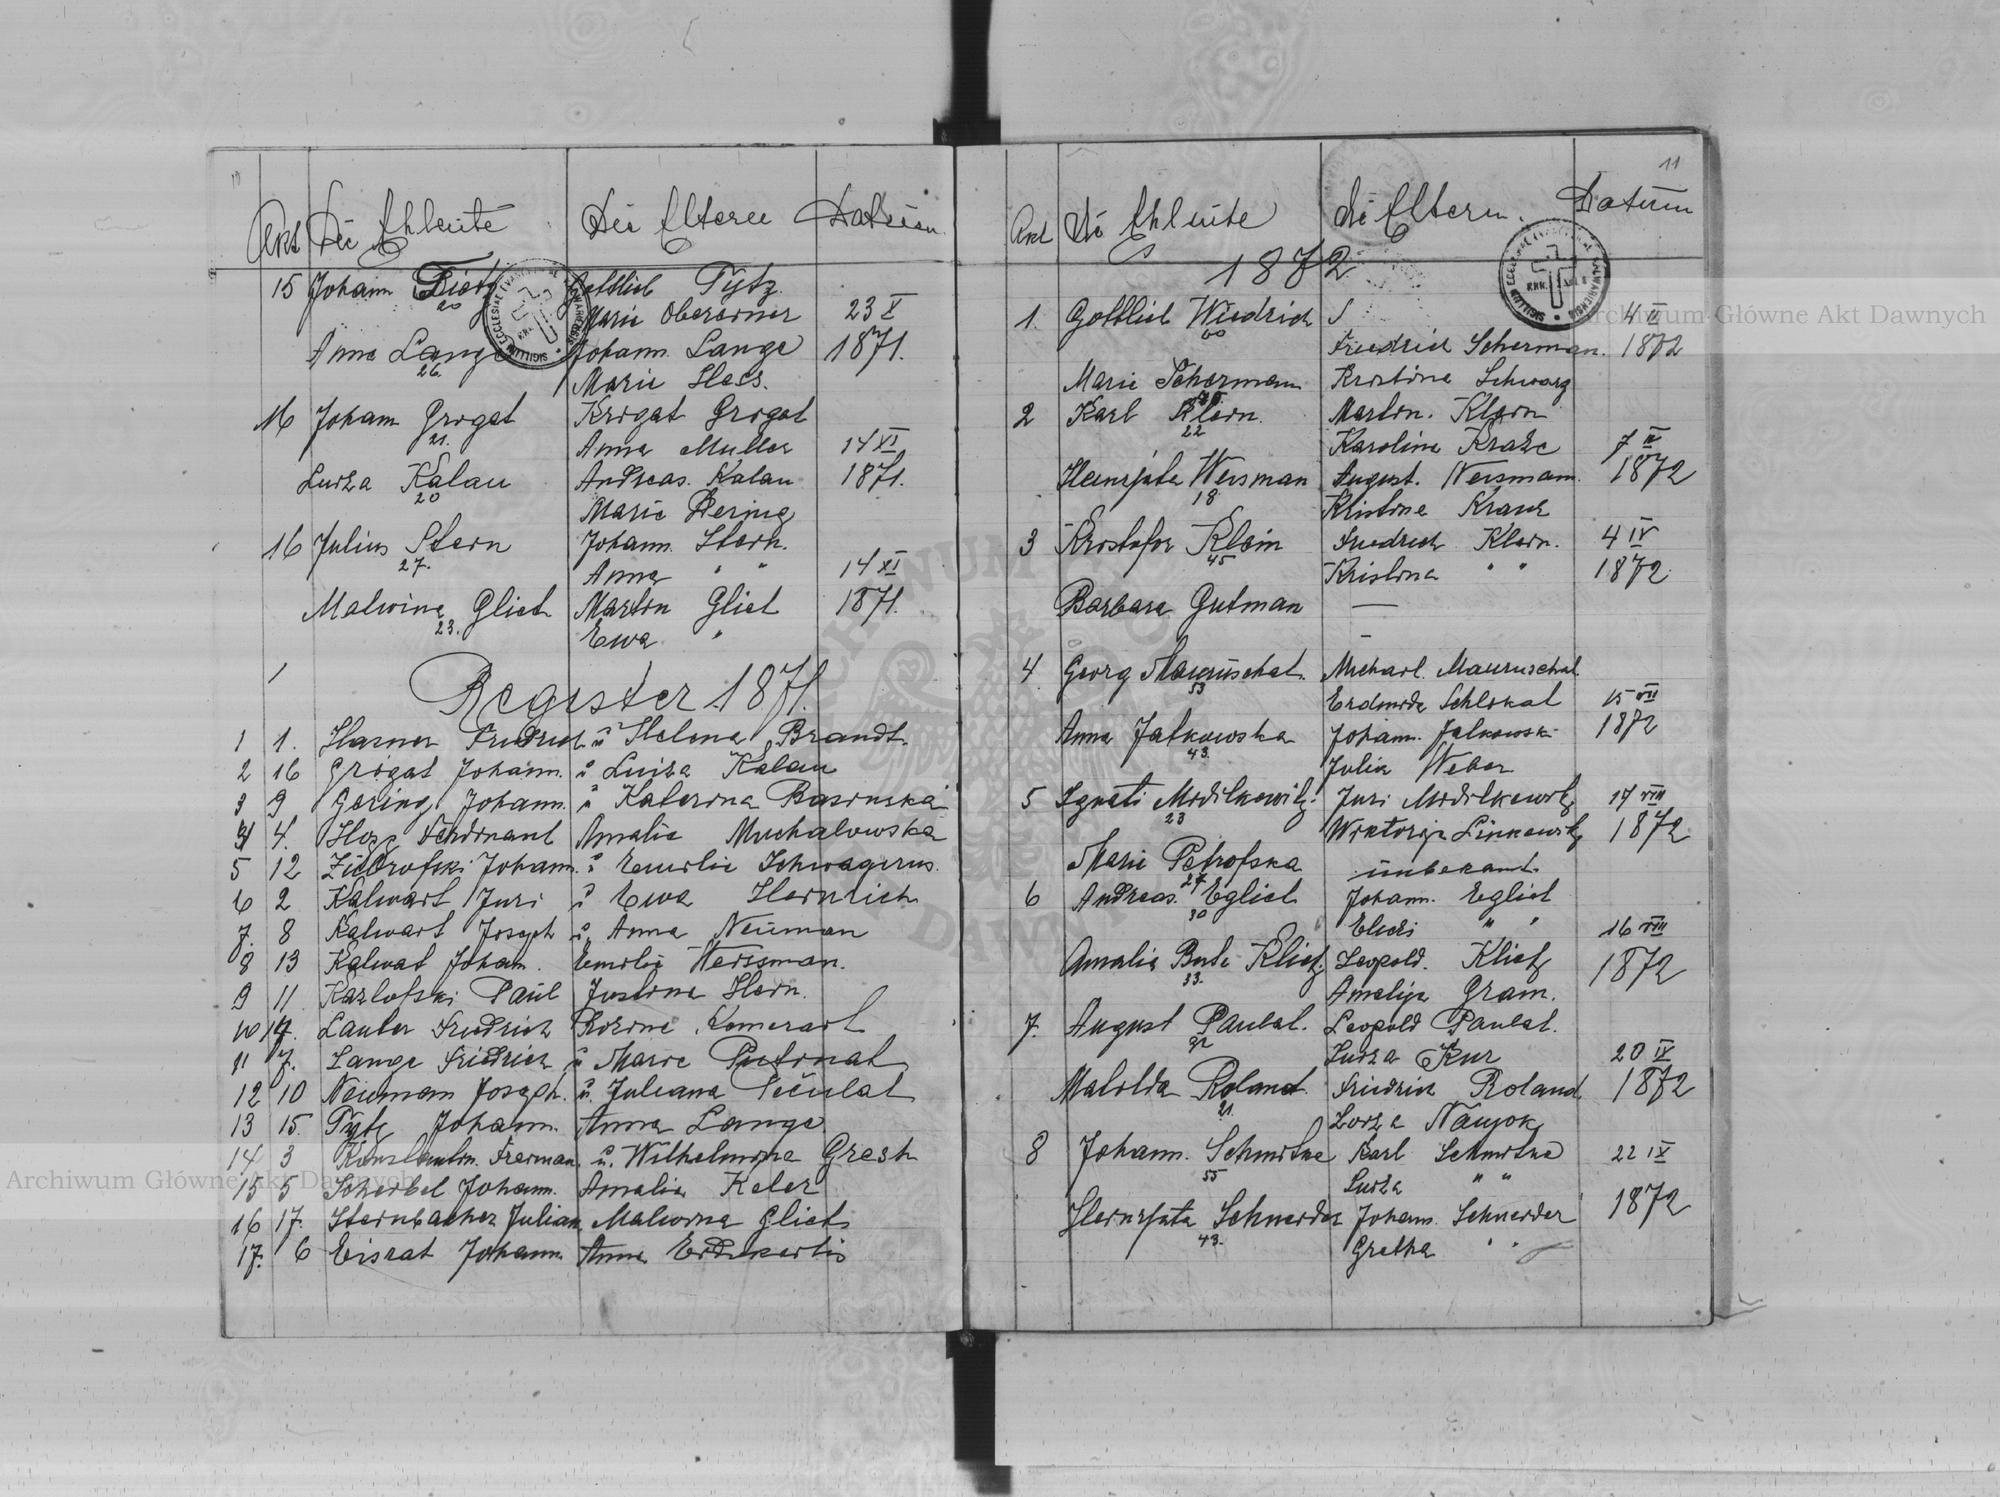 11
Akt Die Ehleute Die Elteren Datum
15 Johann Gottlieb Tytz
20 Marie Oberorner 23 X
Anna Lange Johann Lange 1871.
26. Marie Hees.
16 Joham Grogat Krogat Grogat
21. Anna Muller 14 XI
Luiza Kalau Andreas. Kalau 1871.
20 Marie Hering
16 Julius Stern Johann Stern.
27. Anna " " 14 XI
Malwina Gliet Marton Gliet 1871.
23. Ewa "
Register 1871.
1 1. Hasner Fredrich u Helena Brandt.
2 16 Grogat Johann. u Luiza Kalau
3 9 Goring Johann. u Katerina Basinska
4 4. Ferdinant Amalie Muchalowska
5 12 Johann. u Emilie Schwagerus.
6 2 Kalwart Juri u Ewa Heinrich
7. 8 Kalwart Joseph u. Anna Neuman
8 13 Kalwat Joham. Emilie Weissman.
9 11 Kazlofski Paul Justina Stern.
10 14. Lauber Friedrich Rozine Komerart
11 7. Lange Friedrich u Marie Putrnat
12 10 Neuman Joseph. u. Juliana Pečulat
13 15. Tytz Johann. Anna Lange
14 3 Konstantin. Freeman. u. Wilhelmina Gresch
15 5 Scherbel Johann. Amalia Keler
16 17. Sternbacher Julian Malwina Gliet
17. 6 Eisrat Johann Anna
Akt Di Ehleute Di Eltern. Datum
1872
1. Gottlieb Wiedrich 4 II
60 Friedrich Scherman. 1872
Marie Scherman Kristina Schwarz
2 Karl Klein. Martin. Klein
22 Karolina Kraze 7 II
Heinrjata Weisman August. Weismann. 1872
18 Kristina Krauz
3 Kristofor Klein Friedrich Klein. 4 IV
45 Kristina " " 1872
Barbara Gutman —
4 Georg Mauruschat. Michael. Mauruschat
53 Erdmuda Schlokat 15 VII
Anna Jatkowska Johann. Jatkowski 1872
43. Julia Weber
5 Ignati Modilkowitz. Juri Modilkowitz 17 VIII
23 Wiktorija Linkewitz 1872
Marie Petrofska unbekant.
27
6 Andreas. Egliet Johann. Egliet
30 " " 16 VIII
Amalia Klietz Leopold. Klietz 1872
33. Amelija Gram.
7. August Paulat. Leopold Paulat.
Luiza Kur 20 IX
Matilda Roland. Friedrich Roland 1872
21. Lorza Naujok
8 Johann. Schmitke Karl Schmitke 22 IX
55 Luiza " "
Heinrjata Schneider Johann. Schneider 1872
43. Gretha " "
Archiwum Główne Akt Dawnych
Archiwum Główne Akt Dawnych